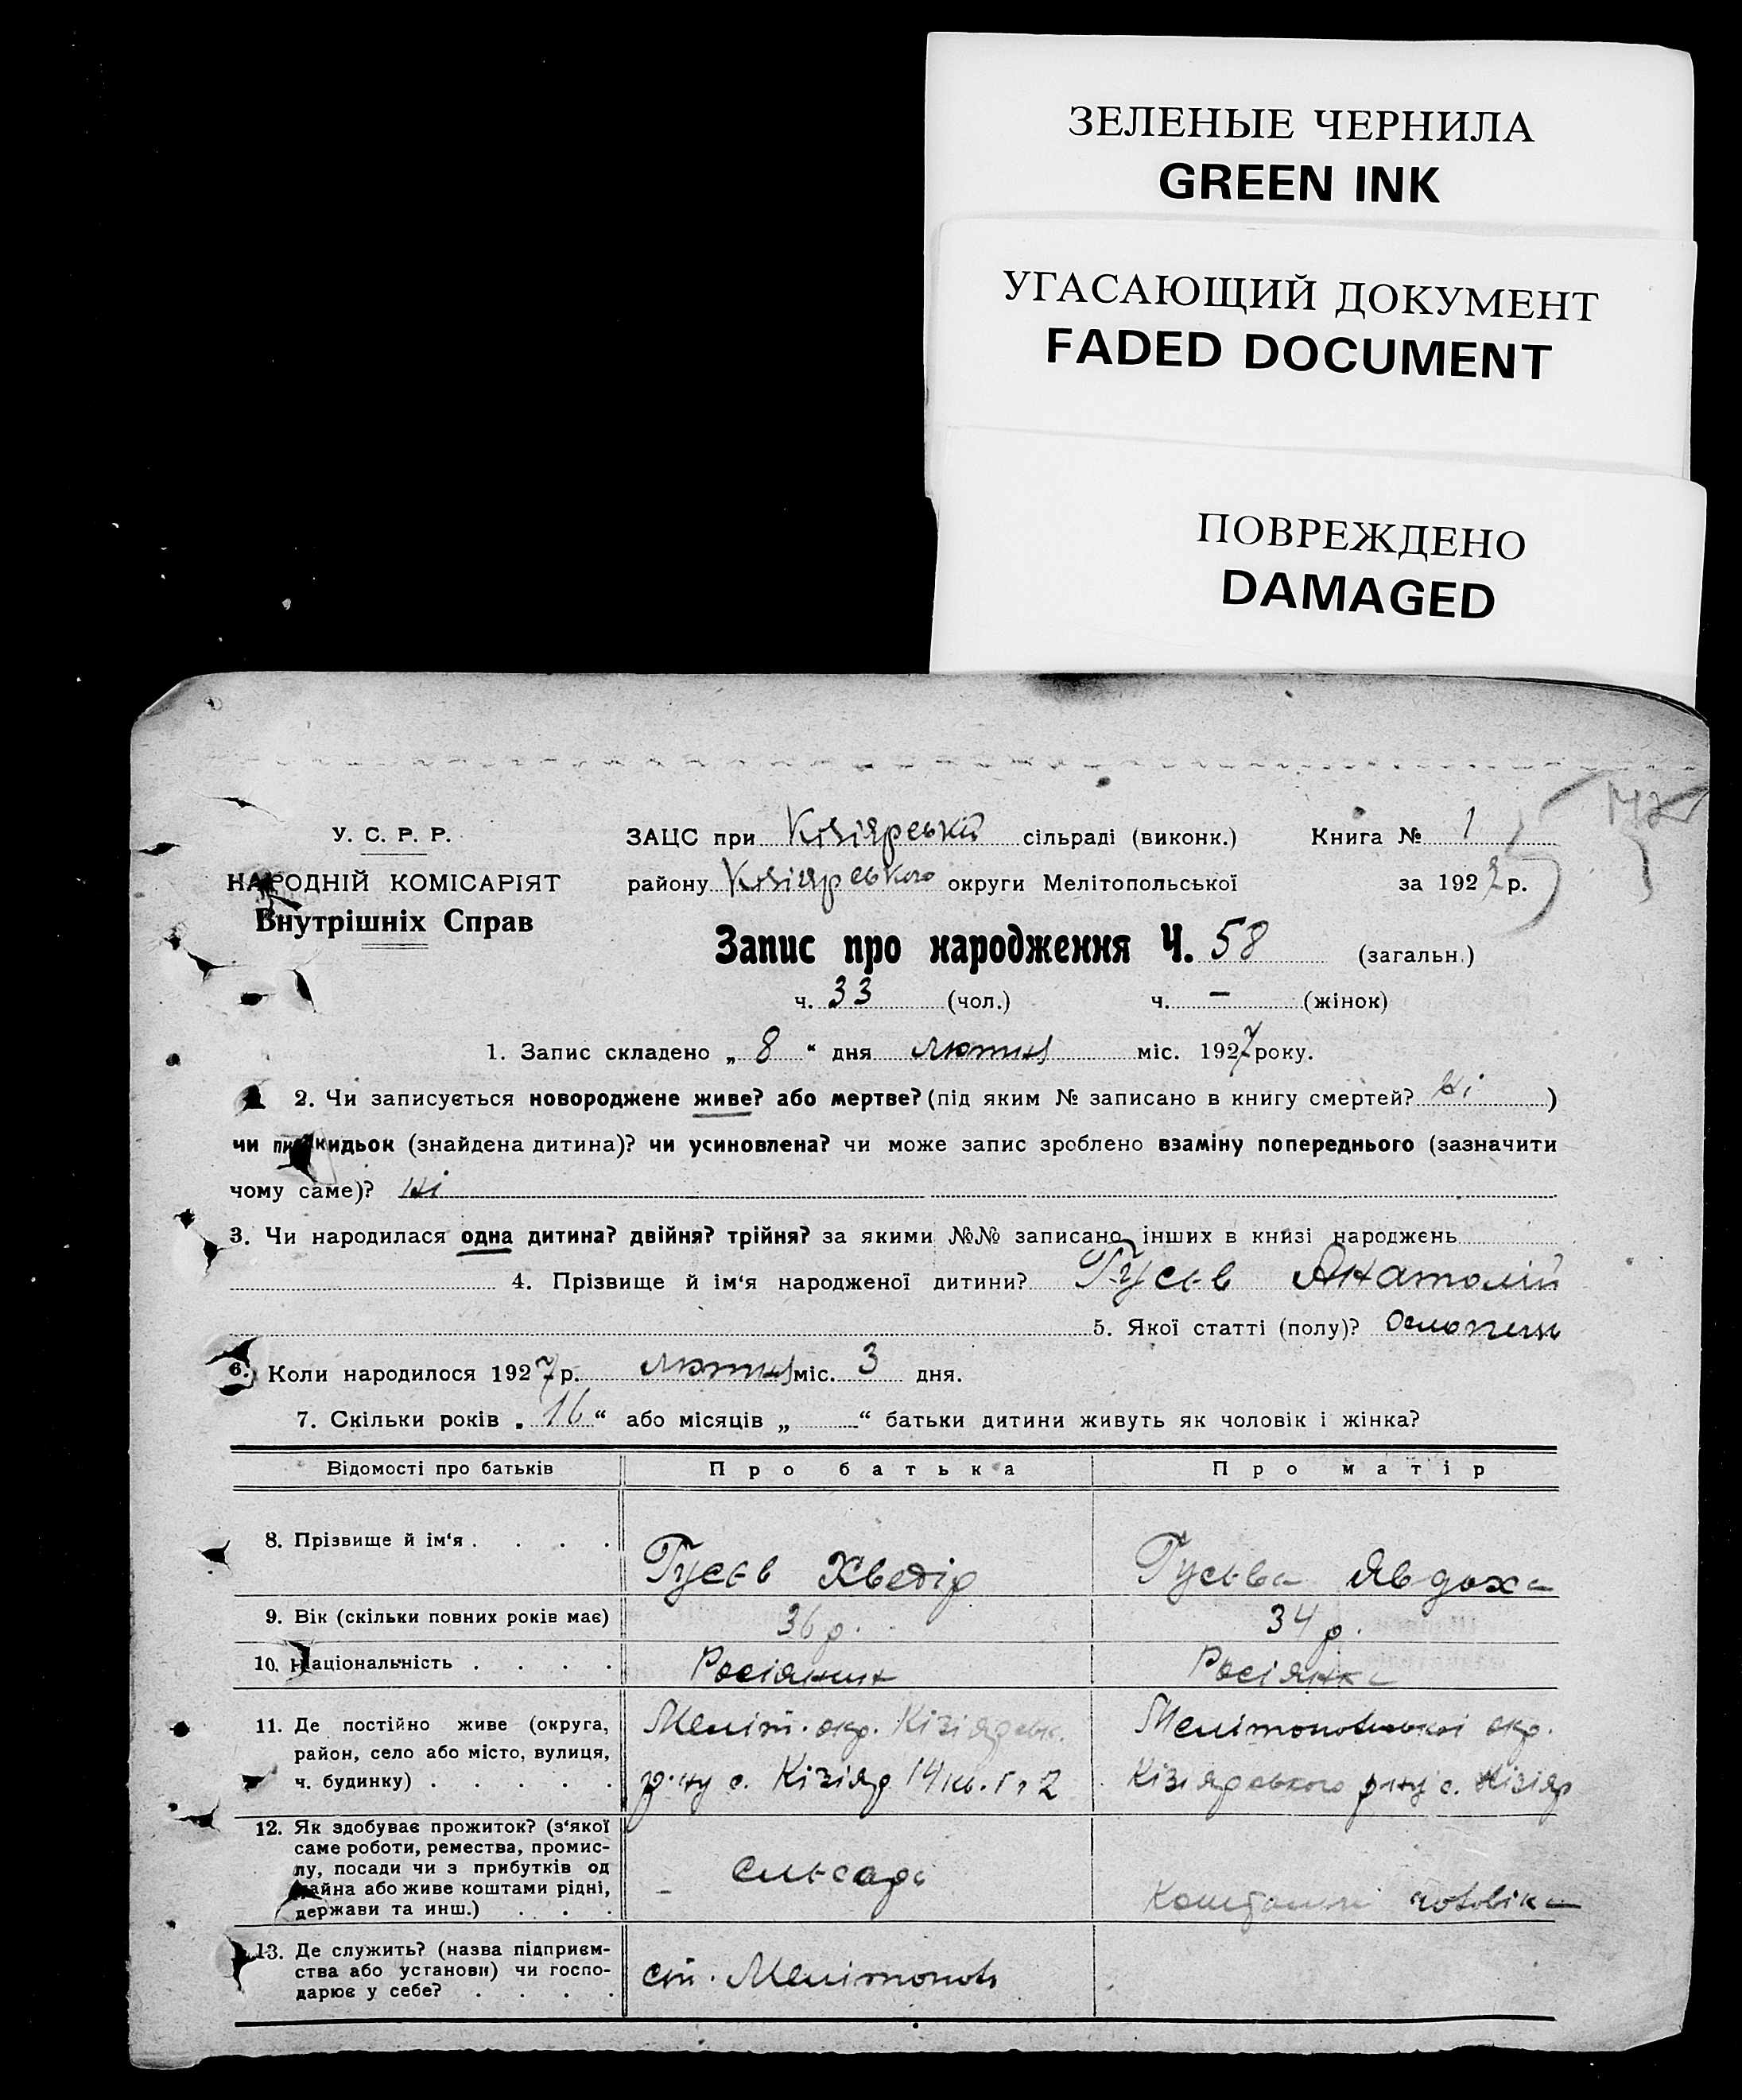 ЗЕЛЕНЫЕ ЧЕРНИЛА
GREEN INK
УГАСАЮЩИЙ ДОКУМЕНТ
FADED DOCUMENT
ПОВРЕЖДЕНО
DAMAGED
У. С. Р. Р.
НАРОДНІЙ КОМІСАРІЯТ
Внутрішніх Справ
ЗАЦС при Кізіярській сільраді (виконк.) Книга № 1
району Кізіярського округи Мелітопольської за 1927 р.
Запис про народження Ч. 58 (загальн.)
ч. 33 (чол.) ч. — (жінок)
1. Запис складено „ 8 “ дня лютня міс. 1927 року.
2. Чи записується новороджене живе? або мертве? (під яким № записано в книгу смертей? ні )
чи підкидьок (знайдена дитина)? чи усиновлена? чи може запис зроблено взаміну попереднього (зазначити
чому саме)? ні
3. Чи народилася одна дитина? двійня? трійня? за якими №№ записано інших в книзі народжень
4. Прізвище й ім‘я народженої дитини? Гусєв Анатолій
5. Якої статті (полу)? 
6. Коли народилося 1927 р. лютня міс. 3 дня.
7. Скільки років „ 16 “ або місяців „ “ батьки дитини живуть як чоловік і жінка?
Відомості про батьків Про батька Про матір
8. Прізвище й ім‘я . . . . Гусєв Хведір Гусєва Явдоха
9. Вік (скільки повних років має) 36 р. 34 р.
10. Національність . . . . Росіянин Росіянка
11. Де постійно живе (округа, Меліт. окр. Кізіярськ. Мелітопольської окр.
район, село або місто, вулиця,
ч. будинку) . . . . . р-ну с. Кізіяр 14 кв. Кізіярського р-ну с. Кізіяр
12. Як здобуває прожиток? (з‘якої
саме роботи, ремества, промис-
лу, посади чи з прибутків од
майна або живе коштами рідні,
держави та инш.) . . . слюсарь Коштами чоловіка
13. Де служить? (назва підприєм-
ства або установи) чи госпо-
дарює у себе? . . . . ст. Мелітополь